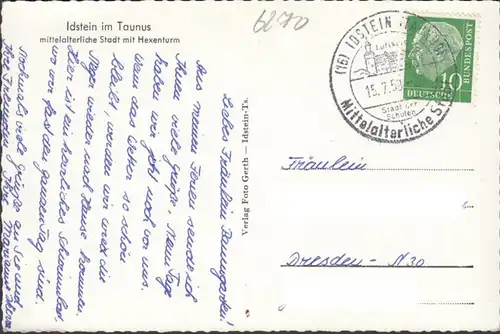 Idstein im Taunus
mittelalterliche Stadt mit Hexenturm
6270
(16) IDSTEIN
15.7.58
Stadt der
Schulen
Mittelalterliche St
10
DEUTSCHE
BUNDESPOST
Verlag Foto Gerth — Idstein-Ts.
Liebes Fräulein Baumgarten!
Aus meinen Ferien sende ich
Ihnen viele Grüße. Neun Tage
haben wir jetzt noch vor uns.
Wenn das Wetter so schön
bleibt, werden wir
wieder nach Hause kommen.
Hier ist ein herrliches Schwimmbad,
wo wir fast den ganzen Tag sind.
Nochmals viele Grüße an Sie und
Ihre
Fräulein
Dresden - N 30